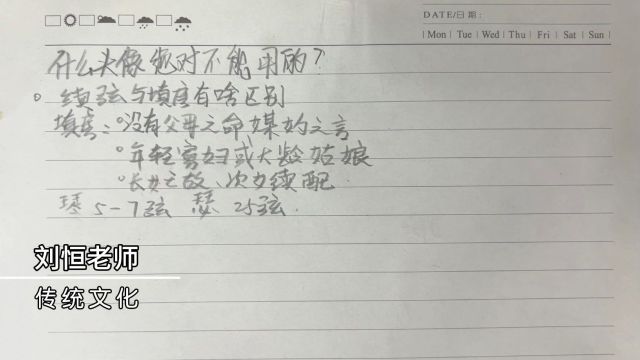 DATE/日期:
Mon Tue Wed Thu Fri Sat Sun
什么头像绝对不能用的?
续弦与填房有啥区别
填房:没有父母之命媒妁之言
年轻寡妇或大龄姑娘
长女亡故、次女续配
琴5-7弦 瑟25弦.
刘恒老师
传统文化